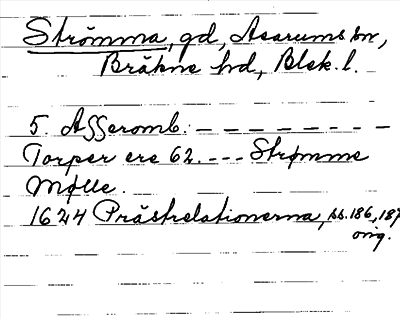 Strömma, gd, Asarums sn,
Bräkne hd, Blek. l.
5. Asseromb. – – – – – – – –
Torper ere 62. --- Strømme
Mølle.
1624 Prästrelationerna, ss. 186, 187
orig.